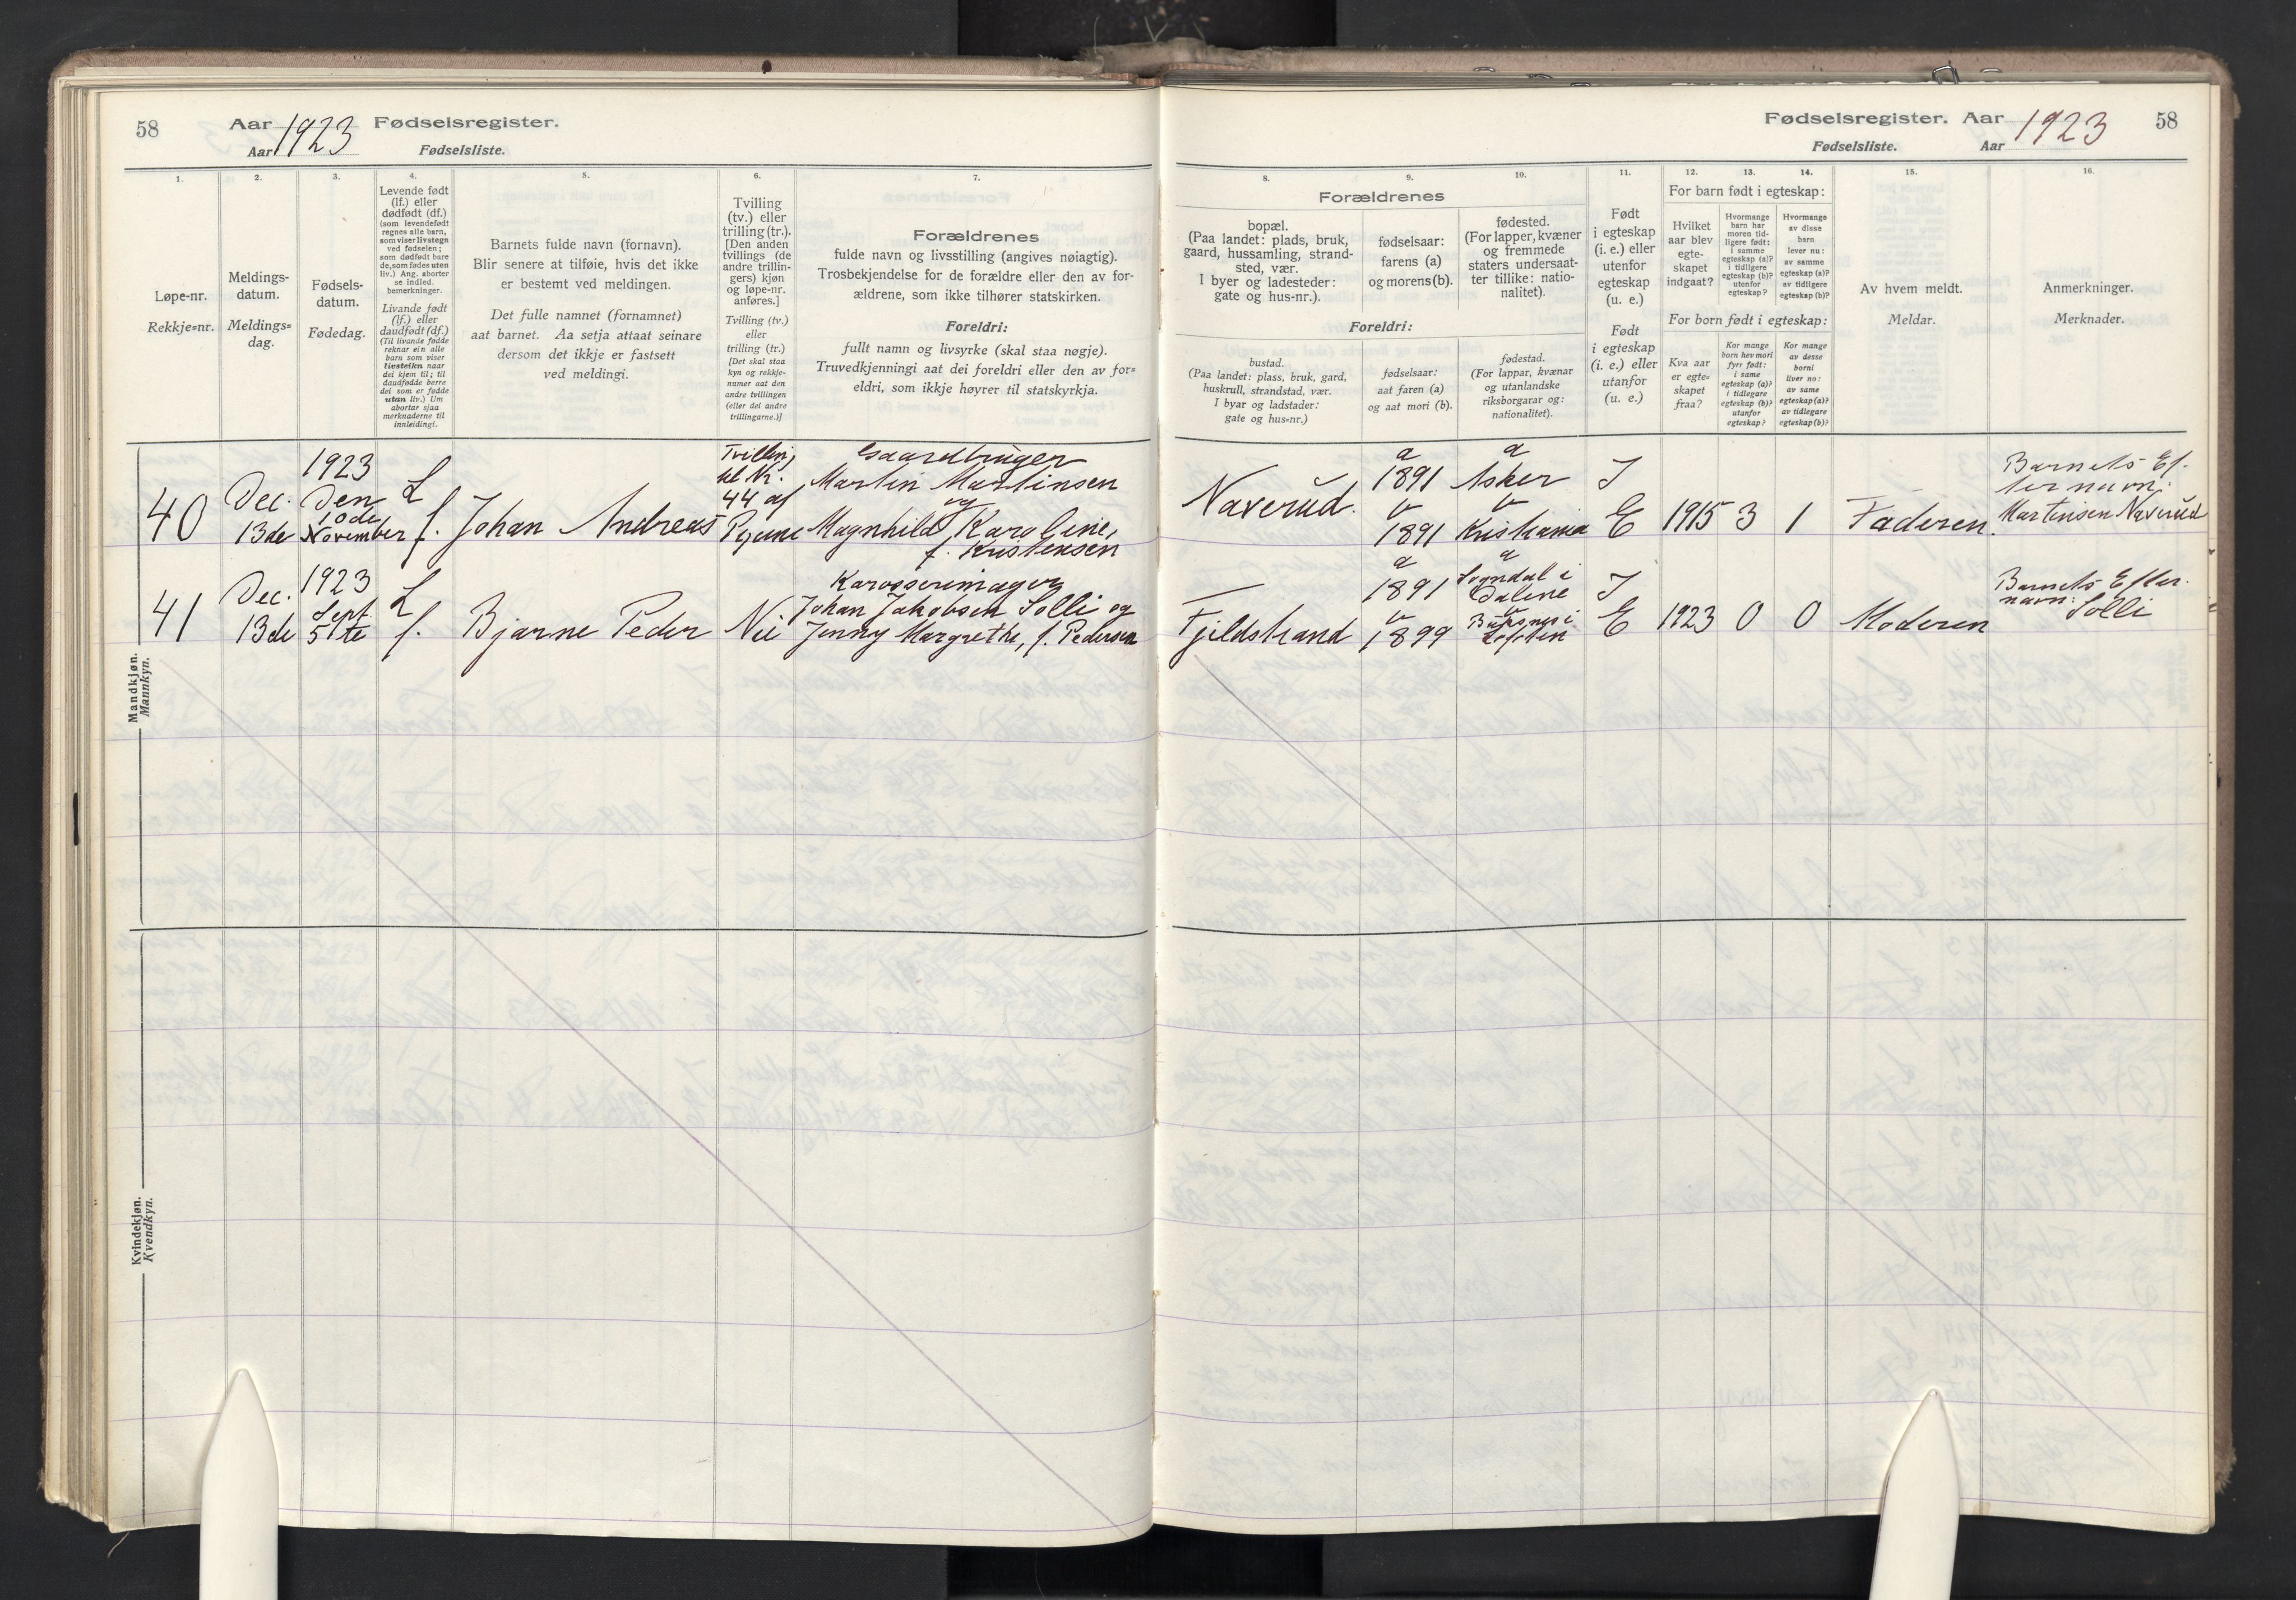 58
Aar 1923 Fødselsregister.
Aar Fødselsliste.
1.
Løpe-nr.
Rekkje=nr.
2.
Meldings-
datum.
Meldings=
dag.
3.
Fødsels-
datum.
Fødedag.
4.
Levende født
(lf.) eller
dødfødt (df.)
(som levendefødt
regnes alle barn,
som viser livstegn
ved fødselen;
som dødfødt bare
de, som fødes uten
liv.) Ang. aborter
se indled.
bemerkninger.
Livande født
(lf.) eller
daudfødt (df.)
(Til livande fødde
reknar ein alle
barn som viser
livsteikn naar
dei kjem til; til
daudfødde berre
dei som er fødde
utan liv.) Um
abortar sjaa
merknaderne til
innleidingi.
5.
Barnets fulde navn (fornavn).
Blir senere at tilføie, hvis det ikke
er bestemt ved meldingen.
Det fulle namnet (fornamnet)
aat barnet. Aa setja attaat seinare
dersom det ikkje er fastsett
ved meldingi.
6.
Tvilling
(tv.) eller
trilling (tr.).
[Den anden
tvillings (de
andre trillin-
gers) kjøn
og løpe-nr.
anføres.]
Tvilling (tv.)
eller
trilling (tr.)
[Det skal staa
kyn og rekkje-
numer aat den
andre tvillingen
(eller dei andre
trillingarne.)]
7.
Forældrenes
fulde navn og livsstilling (angives nøiagtig).
Trosbekjendelse for de forældre eller den av for-
ældrene, som ikke tilhører statskirken.
Foreldri:
fullt namn og livsyrke (skal staa nøgje).
Truvedkjenningi aat dei foreldri eller den av for=
eldri, som ikkje høyrer til statskyrkja.
40
Dec.
13de
1923
Den
10de
November
L
f.
Johan Andreas
Tvilling
til Nr.
44 af
Pigerne
Gaardbruger
Martin Martinsen
og
Magnhild Karoline,
f. Kristensen
41
Dec.
13de
1923
Sept
5te
L
f.
Bjarne Peder
Nei
Karosserimager
Johan Jakobsen Solli og
Jenny Margrethe, f. Pedersen
Mandkjøn.
Mannkyn.
Kvindekjøn.
Kvendkyn.
Fødselsregister. Aar 1923
Fødselsliste. Aar
58
8.
Forældrenes
bopæl.
(Paa landet: plads, bruk,
gaard, hussamling, strand-
sted, vær.
I byer og ladesteder:
gate og hus-nr.).
Foreldri:
bustad.
(Paa landet: plass, bruk, gard,
huskrull, strandstad, vær.
I byar og ladstader:
gate og hus=nr.)
9.
fødselsaar:
farens (a)
og morens (b).
fødselsaar:
aat faren (a)
og aat mori (b).
10.
fødested.
(For lapper, kvæner
og fremmede
staters undersaat-
ter tillike: natio-
nalitet).
fødestad.
(For lappar, kvænar
og utanlandske
riksborgarar og:
nationalitet).
11.
Født
i egteskap
(i. e.) eller
utenfor
egteskap
(u. e.)
Født
i egteskap
(i. e.) eller
utanfor
(u. e.)
For barn født i egteskap:
For born født i egteskap:
12.
Hvilket
aar blev
egte-
skapet
indgaat?
Kva aar
er egte=
skapet
fraa?
13.
Hvormange
barn har
moren tid-
ligere født:
i samme
egteskap (a)?
i tidligere
egteskap (b)?
utenfor
egteskap?
Kor mange
born hev mori
fyrr født:
i same
egteskap (a)?
i tidlegare
egteskap (b)?
utanfor
egteskap?
14.
Hvormange
av disse
barn
lever nu:
av samme
egteskap (a)?
av tidligere
egteskap (b)?
Kor mange
av desse
borni
liver no:
av same
egteskap (a)?
av tidlegare
egteskap (b)?
15.
Av hvem meldt.
Meldar.
16.
Anmerkninger.
Merknader.
Naverud.
a
1891
b
1891
a
Asker
b
Kristiania
I
E
1915
3
1
Faderen.
Barnets Ef-
ternavn:
Martinsen Naverud
Fjeldstrand
a
1891
b
1899
a
Sogndal i
Dalene
b
I
E
1923
0
0
Moderen
Barnets Efter-
navn: Solli